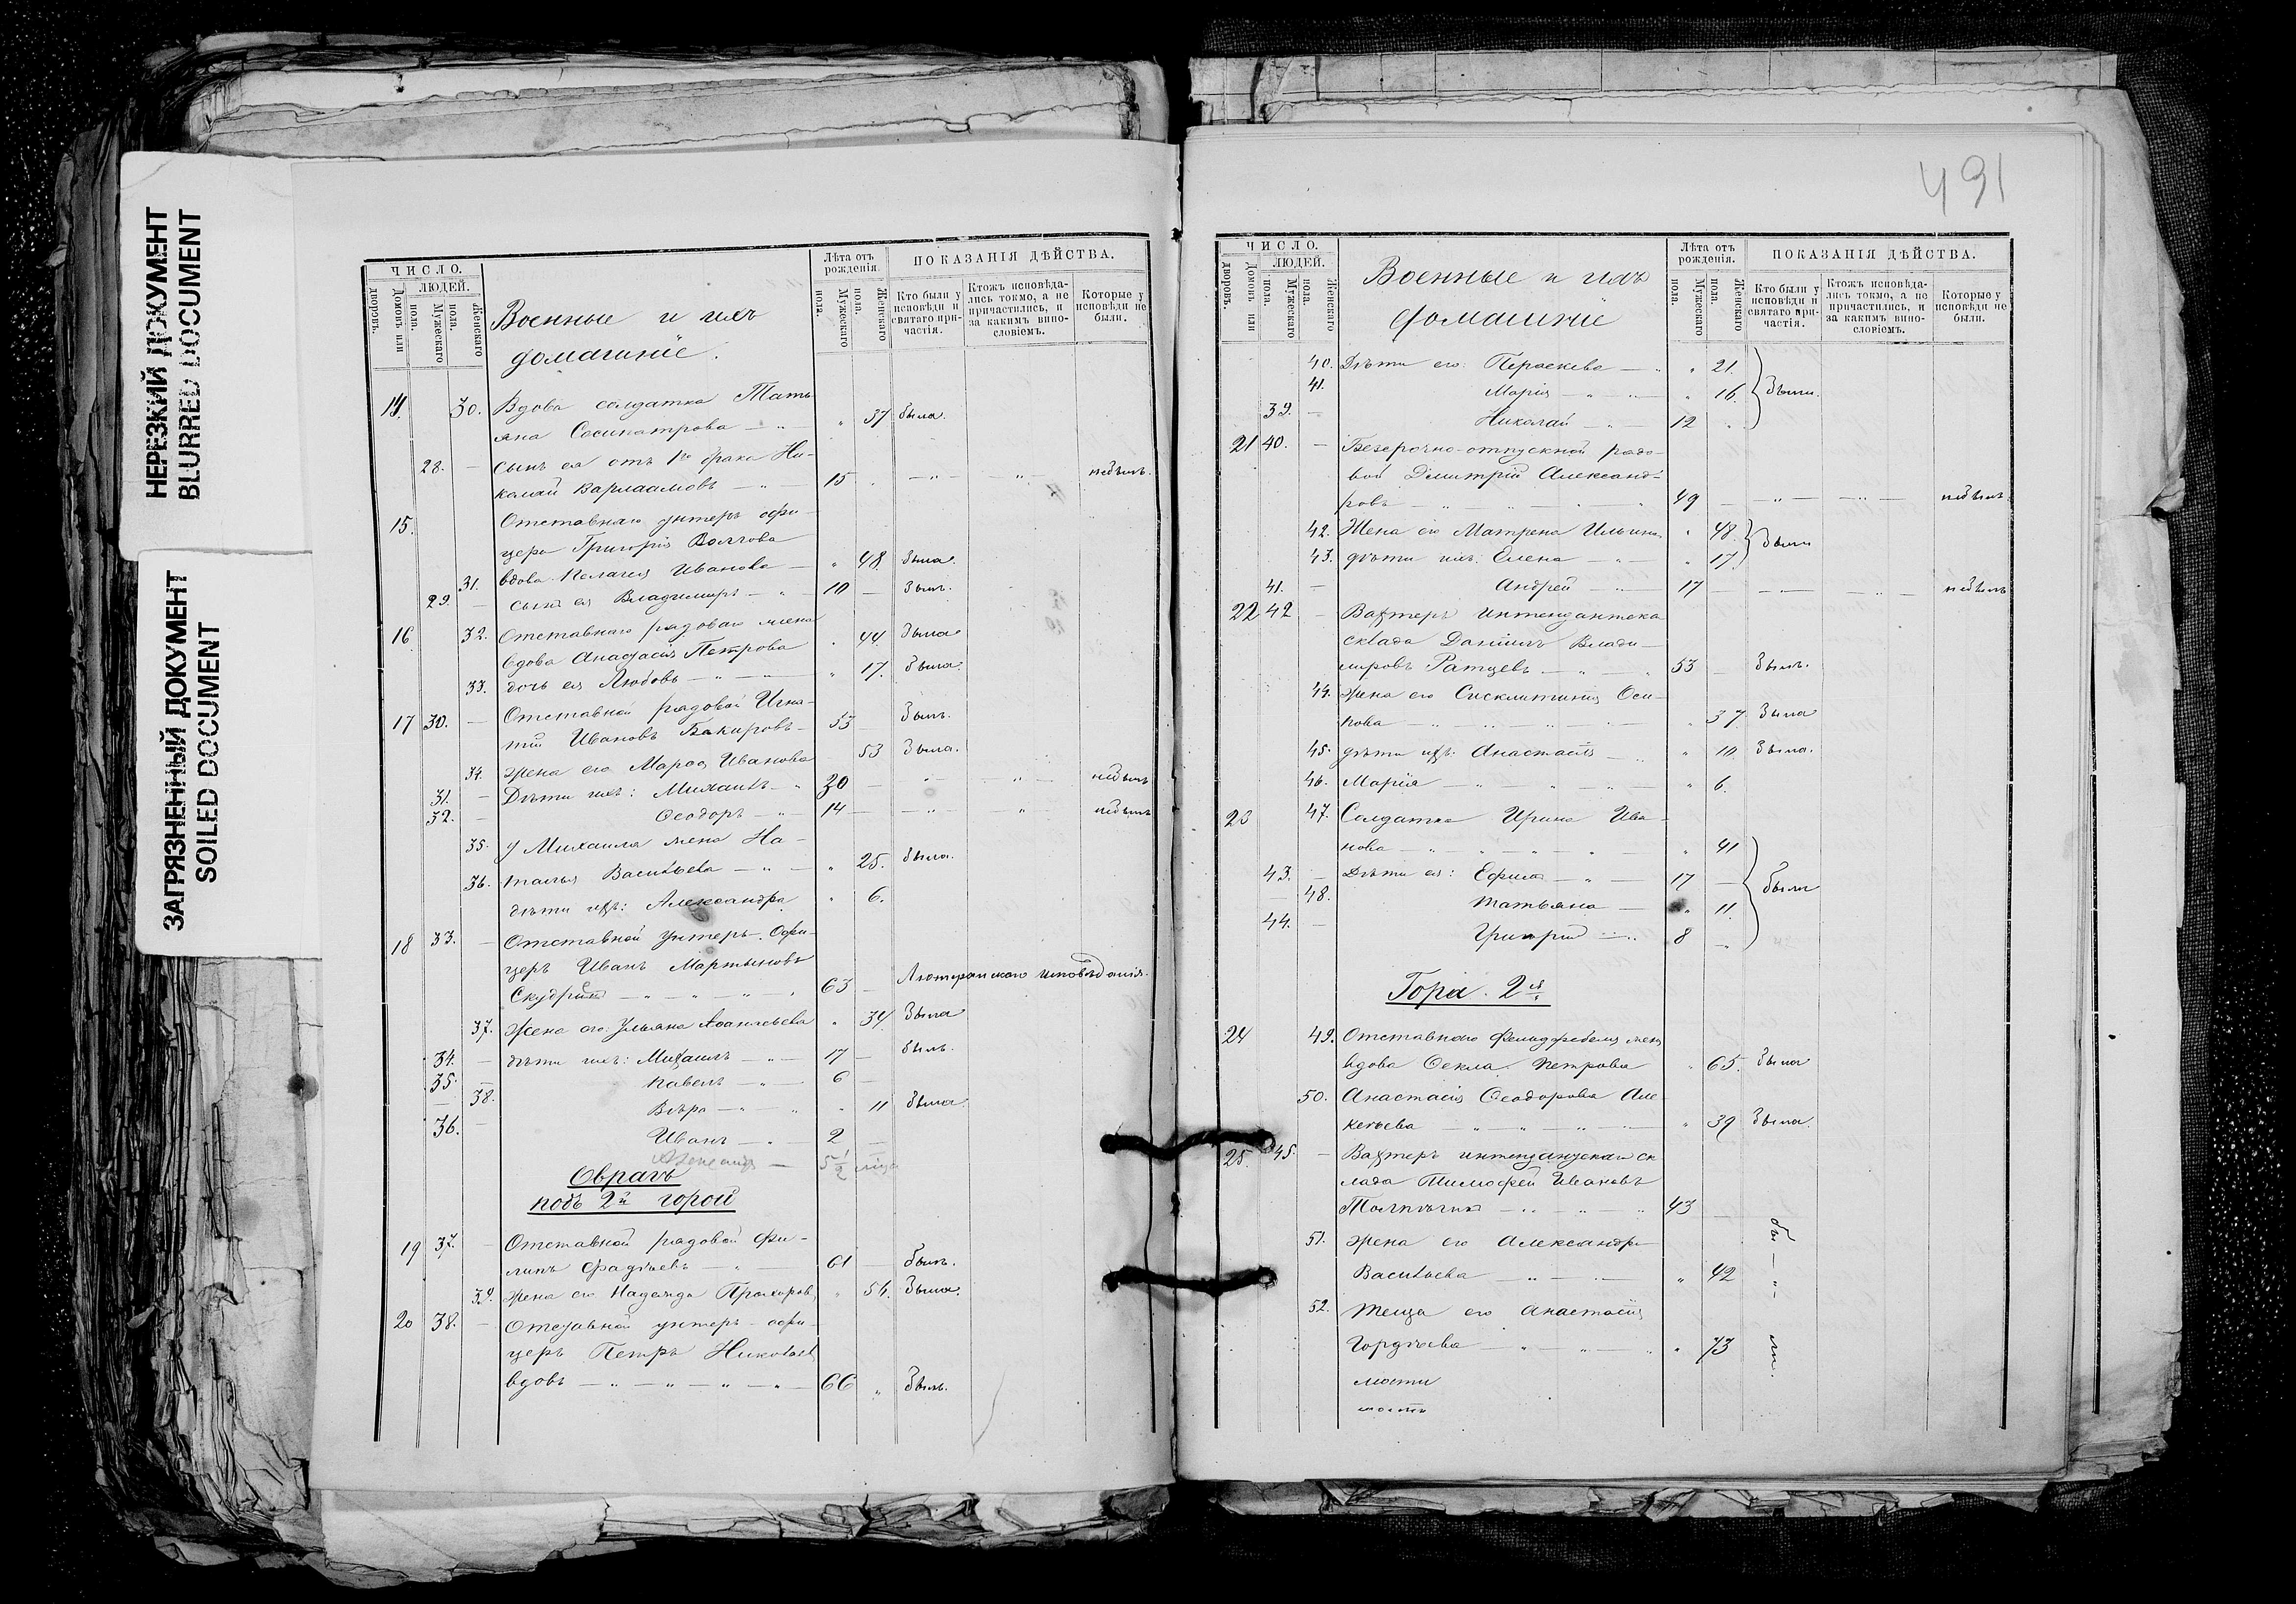 НЕРЕЗКИЙ ДОКУМЕНТ
BLURRED DOCUMENT
ЗАГРЯЗНЕННЫЙ ДОКУМЕНТ
SOILED DOCUMENT
ЧИСЛО.
ЛЮДЕЙ.
Домовъ или дворовъ.
Мужескаго пола.
Женскаго пола.
Военные и ихъ
домашніе.
Лѣта отъ рожденія.
Мужескаго пола.
Женскаго пола.
ПОКАЗАНІЯ ДѢЙСТВА.
Кто были у исповѣди и святаго причастія.
Ктожъ исповѣдались токмо, а не причастились, и за какимъ винословіемъ.
Которые у исповѣди не были.
14. 30. Вдова солдатка Тать
яна Сосипатрова — „ 37 была.
28. — сынъ ея отъ 1го брака Ни-
колай Варлаамовъ — 15 небылъ.
15. Отставнаго унтеръ офи-
цера Григорія Волгова
31. вдова Пелагія Иванова — „ 48 была.
29. — сынъ ея Владимиръ — „ 10 — былъ.
16 32. Отставнаго рядоваго жена
вдова Анастасія Петрова „ 44 была
33. дочь ея Любовь — „ — „ 17. была
17 30. — Отставной рядовой Игна-
тій Ивановъ Бакировъ — 53 былъ.
34. жена его Марѳа Иванова 53 была.
31. — Дѣти ихъ: Михаилъ — „ 30 — небылъ
32. — Ѳеодоръ — „ 14 — небылъ
35. у Михаила жена На-
36. талья Васильева — „ — „ 25. была.
дѣти ихъ: Александра „ 6.
18 33. — Отставной Унтеръ-Офи-
церъ Иванъ Мартыновъ
Скудринъ — „ — „ — 63 — Лютеранскаго исповѣданія.
37. Жена его Ульяна Аѳанасьева „ 34 была
34. — дѣти ихъ: Михаилъ — „ — 17 — былъ.
35. — Павелъ — „ — 6
38. Вѣра — „ — „ 11 была
36. — Иванъ — „ — 2 —
Александръ — 5 1/2 мѣсяц
Оврагъ
подъ 2й горой
19 37. — Отставной рядовой Фи-
липъ Фадѣевъ — „ — 61 — былъ.
39. жена его Надежда Прохоров. „ 54. была.
20 38. — Отставной унтеръ-офи-
церъ Петръ Николаев
вдовъ — „ — „ — „ — 66 „ былъ.
491
ЧИСЛО.
ЛЮДЕЙ.
Домовъ или дворовъ.
Мужескаго пола.
Женскаго пола.
Военные и ихъ
домашніе
Лѣта отъ рожденія.
Мужескаго пола.
Женскаго пола.
ПОКАЗАНІЯ ДѢЙСТВА.
Кто были у исповѣди и святаго причастія.
Ктожъ исповѣдались токмо, а не причастились, и за какимъ винословіемъ.
Которые у исповѣди не были.
40. Дѣти его: Параскева — „ 21.
41. Марія — „ — „ 16. были.
39. — Николай — „ — 12 „
21 40. — Безсрочно-отпускной рядо-
вой Димитрій Александ-
ровъ — „ 49 — небылъ.
42. Жена его Матрена Ильина „ 48.
43. дѣти ихъ: Елена — „ 17. были
41. — Андрей — „ — 17 — небылъ
22 42 — Вахтеръ интендантска
склада Даніилъ Влади-
мировъ Ратцевъ — „ — 53 — былъ.
44. жена его Сисклитинія Оси-
пова — „ — „ 37 была
45. дѣти ихъ: Анастасія — „ 10. была.
46. Марія — „ — „ — „ 6.
23 47. Солдатка Ирина Ива-
нова — „ — „ — „ 41
43. — Дѣти ея: Ефимъ — „ — 17 —
48. Татьяна — „ 11. были
44. — Григорій — „ 8 „
Гора 2я
24 49. Отставного Фельдфебеля жена
вдова Ѳекла Петрова „ 65. была
50. Анастасія Ѳеодорова Але
ксѣева — „ — „ 39 была.
25. 45. — Вахтеръ интендантскаго ск
лада Тимофей Ивановъ
Толпыгинъ — „ — „ 43 —
51. жена его Александра
Васильева — „ — „ 42 бы — „ — ли.
52. Теща его Анастасія
Гордѣева — „ — „ 73